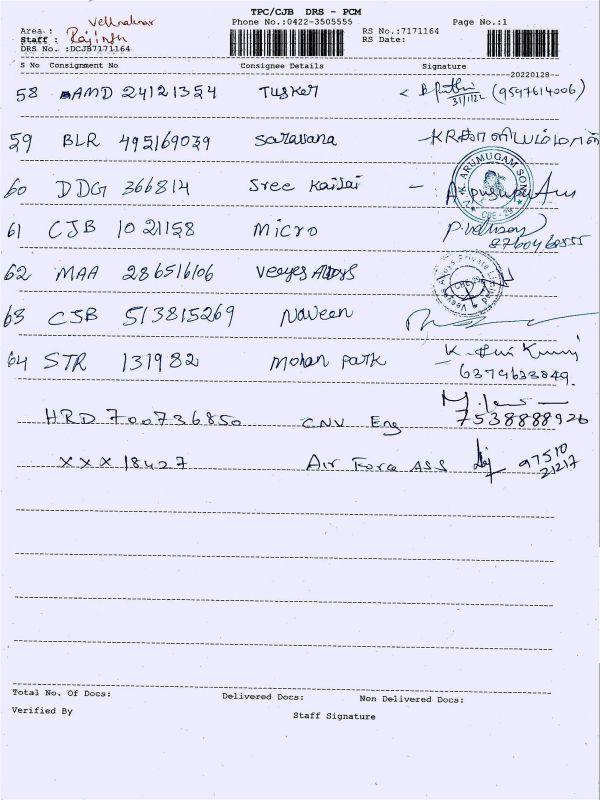 TPC/CJB DRS - PCM
Phone No.:0422-3505555 Page No.:1
Area :
Staff : RS No.:7171164
DRS No. :DCJB7171164 RS Date:
S No Consignment No Consignee Details Signature
20220128
58 AMD 24121354 Tusker (9597614006)
31/1/22
59 BLR 495169039 Saravana
60 DDG 366814 Sree Kailai
ARUMUGAM SON
CBE - 29
61 CJB 1021158 Micro
8760460555
62 MAA 286516106 Veeyes Alloys
63 CJB 513815269 Naveen
64 STR 131982 Mohan park
6374633849
HRD 700736850 CNV Eng 7538888926
XXX 18427 Air Force ASS 97510
21217
Total No. Of Docs: Delivered Docs: Non Delivered Docs:
Verified By
Staff Signature